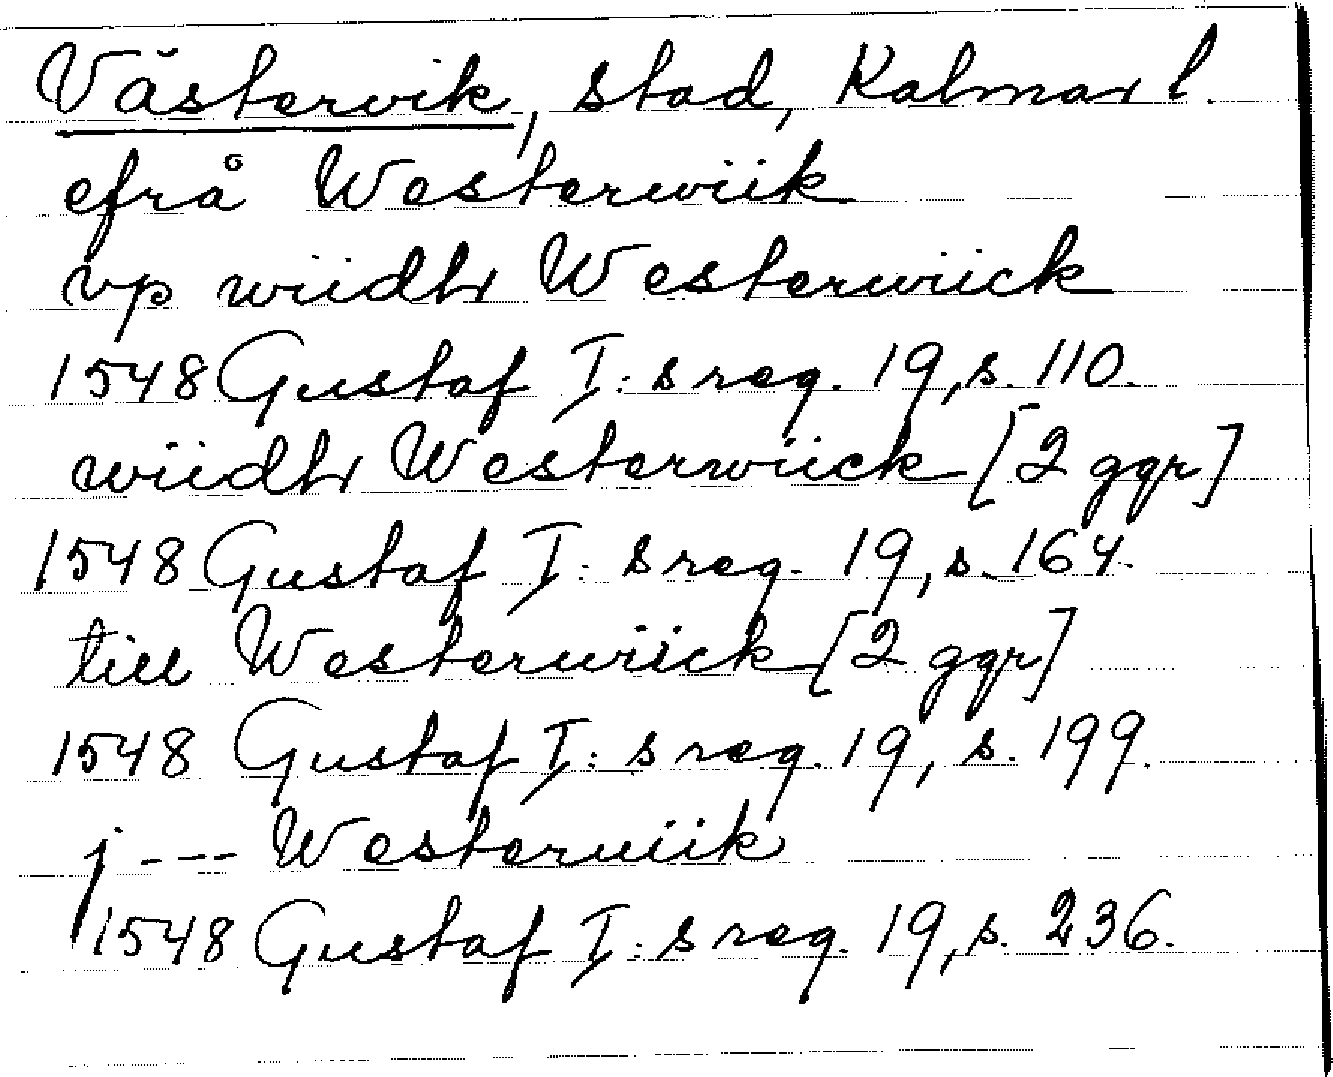 Västervik, stad, Kalmar l.
efrå Westerwiik
vp wiidh Westerwiick
1548 Gustaf I:s reg. 19, s. 110.
wiidh Westerwiick [2 ggr]
1548 Gustaf I:s reg. 19, s. 164.
till Westerwiick [2 ggr]
1548 Gustaf I:s reg. 19, s. 199.
j --- Westerwiik
1548 Gustaf I:s reg. 19, s. 236.